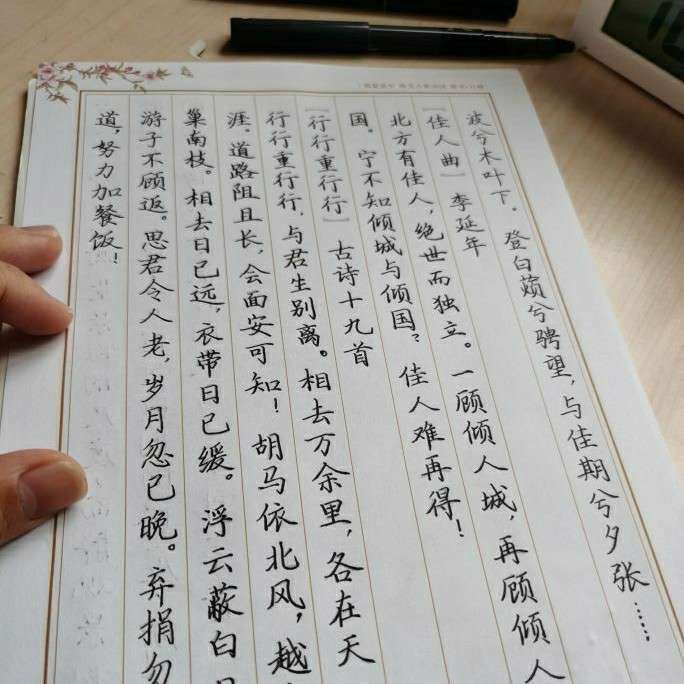 波兮木叶下。登白薠兮骋望，与佳期兮夕张……，
[佳人曲] 李延年
北方有佳人，绝世而独立。一顾倾人城，再顾倾人
国。宁不知倾城与倾国？佳人难再得！
[行行重行行] 古诗十九首
行行重行行，与君生别离。相去万余里，各在天
涯。道路阻且长，会面安可知！胡马依北风，越
巢南枝。相去日已远，衣带日已缓。浮云蔽白
游子不顾返。思君令人老，岁月忽已晚。弃捐勿
道，努力加餐饭！